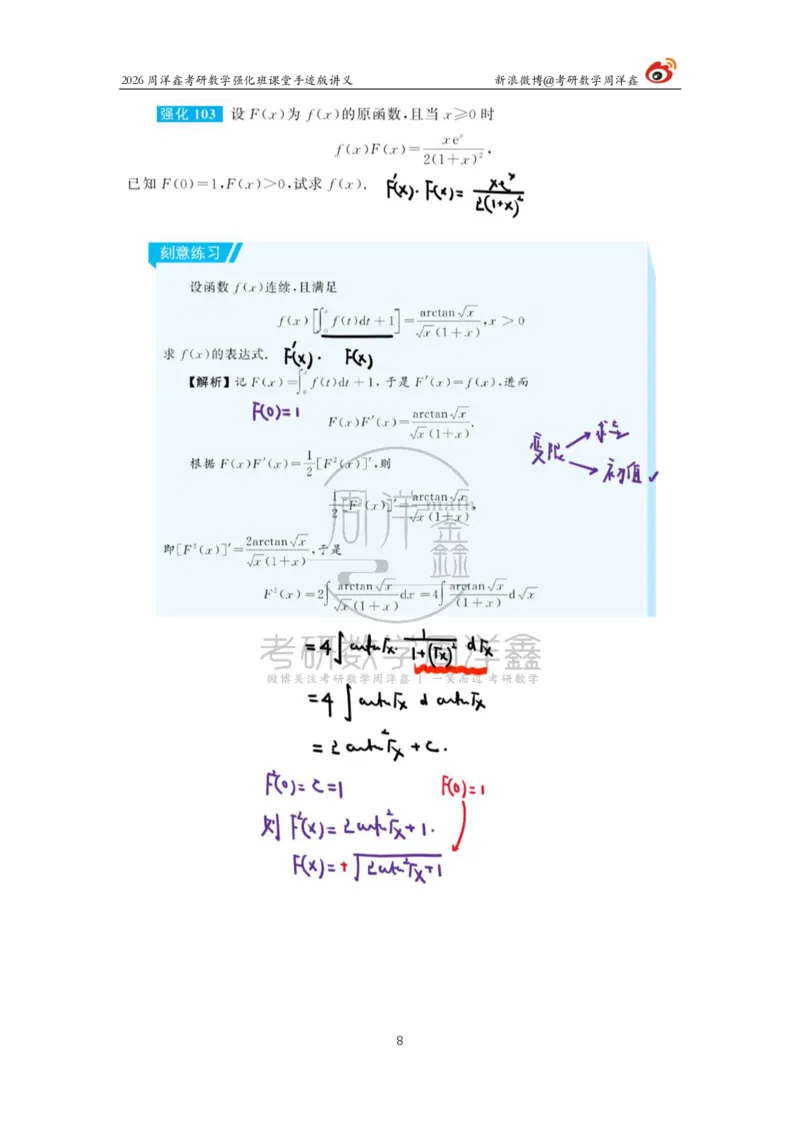 2026 周洋鑫考研数学强化班课堂手迹版讲义 新浪微博@考研数学周洋鑫
强化 103 设 F(x)为 f(x)的原函数,且当 x≥0 时
f(x)F(x)=xe^x/2(1+x)^2,
已知 F(0)=1,F(x)>0,试求 f(x). F'(x)·F(x)=xe^x/2(1+x)^2
刻意练习
设函数 f(x)连续,且满足
f(x)[∫_0^x f(t)dt+1]=arctan√x/√x(1+x),x>0
求 f(x)的表达式. F'(x)· F(x)
【解析】记 F(x)=∫_0^x f(t)dt+1,于是 F'(x)=f(x),进而
F(0)=1
F(x)F'(x)=arctan√x/√x(1+x).
变限 求导
初值 ✓
根据 F(x)F'(x)=1/2[F²(x)]',则
1/2[F²(x)]'=arctan√x/√x(1+x),
即[F²(x)]'=2arctan√x/√x(1+x),于是
F²(x)=2∫arctan√x/√x(1+x)dx=4∫arctan√x/(1+x)d√x
=4∫arctan√x·1/1+(√x)² d√x
=4∫arctan√x d arctan√x
=2arctan²√x+C.
F²(0)=C=1 F(0)=1
则 F²(x)=2arctan²√x+1.
F(x)=+√2arctan²√x+1
周洋鑫 math
考研数学周洋鑫
微博关注考研数学周洋鑫 | 一笑而过 考研数学
8